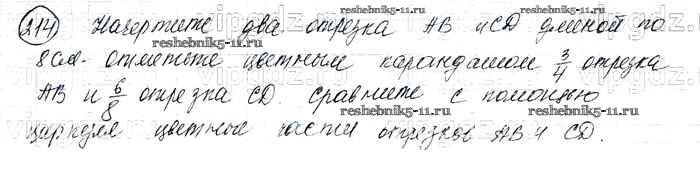 214) Начертите два отрезка AB и CD длиной по
8 см. отметьте цветным карандашом 3/4 отрезка
AB и 6/8 отрезка CD. сравните с помощью
циркуля цветные части отрезков AB и CD.
reshebnik5-11.ru
reshebnik5-11.ru
reshebnik5-11.ru
reshebnik5-11.ru